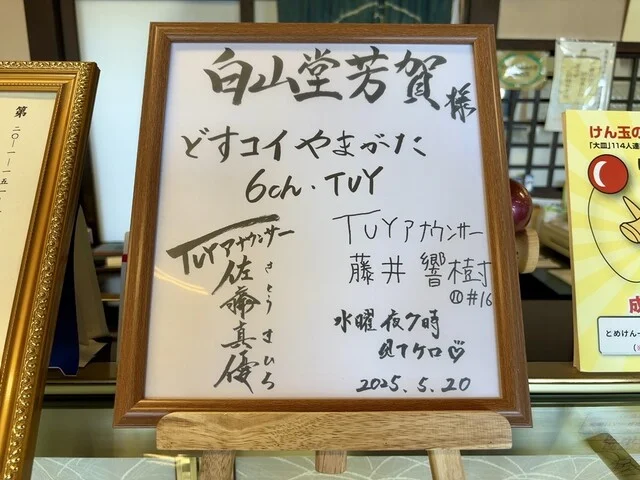 白山堂芳賀様
どすコイやまがた
6ch・TUY
TUYアナウンサー
佐藤真優
さとうまひろ
TUYアナウンサー
藤井響樹
#16
水曜夜7時
見てケロ♡
2025.5.20
第
二〇一一五一
けん玉の
「大皿」114人連
とめけん